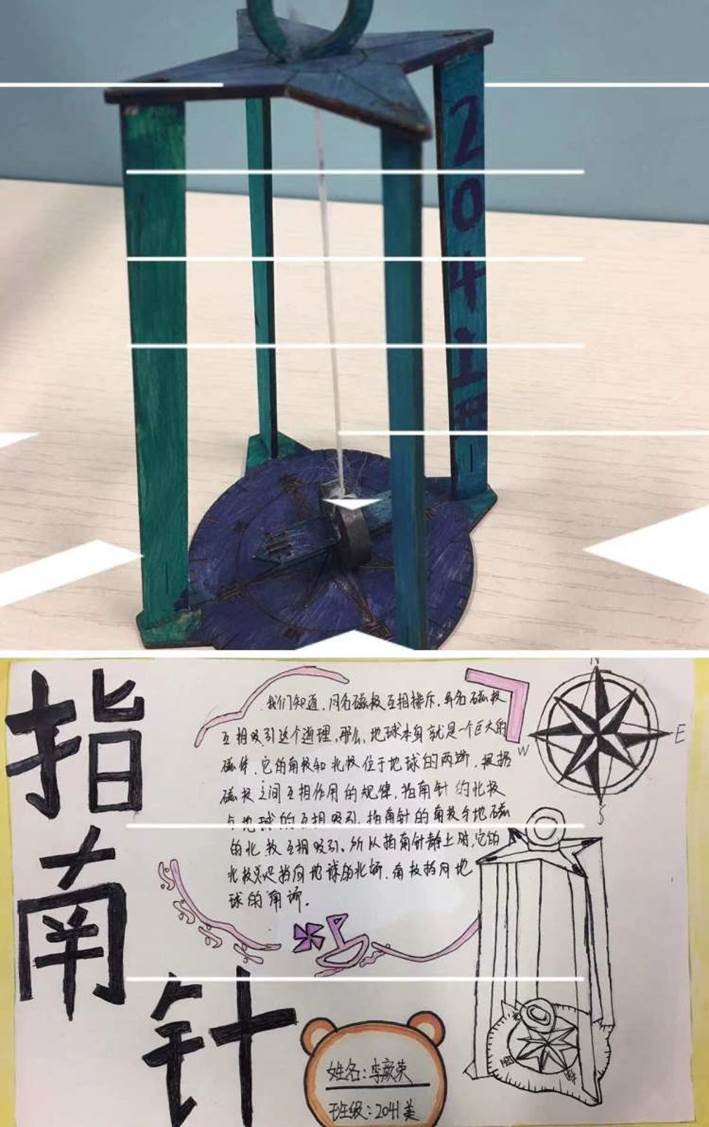 2041美
指南针
我们知道,同名磁极互相排斥,异名磁极
互相吸引这个道理,那么,地球本身就是一个巨大的
磁体,它的南极和北极位于地球的两端,根据
磁极之间互相作用的规律,指南针的北极
与地球的互相吸引,指南针的南极与地磁
的北极互相吸引。所以指南针静止时,它的
北极总是指向地球的北端,南极指向地
球的南端。
N
E
W
S
姓名:李
班级:2041美